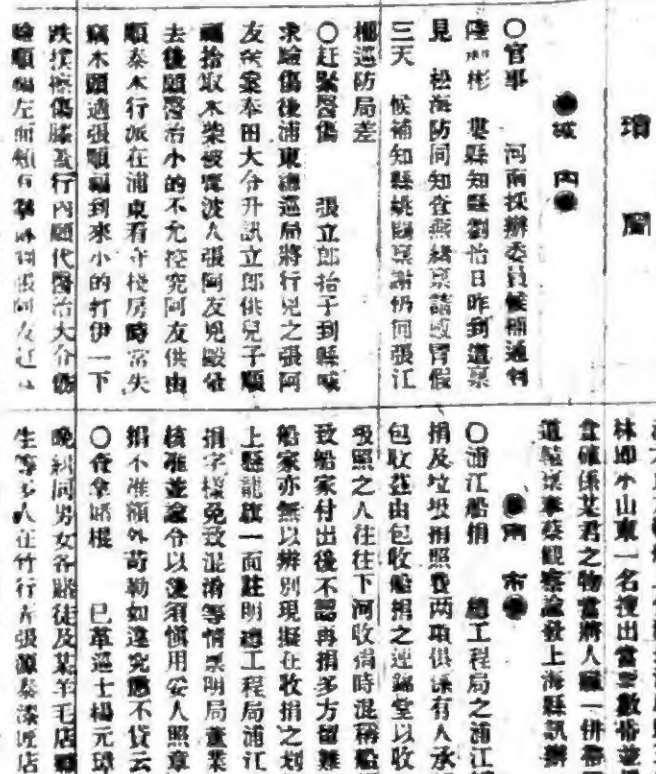 瑣聞
●城內●
○官事　河南採辦委員候補通判
陸彬　婁縣知縣劉怡日昨到道稟
見　松海防同知查燕緒稟請感冒假
三天　候補知縣姚賜稟謝仍回張江
柵巡防局差
○赶緊醫傷　張立郎抬子到縣喊
求驗傷後浦東總巡局將行兇之張阿
友解案奉田大令升訊立郎供兒子順
福拾取木柴被寧波人張阿友兇毆昏
去後願醫治小的不允控究阿友供由
順泰木行派在浦東看守棧房時常失
竊木頭適張順福到來小的打伊一下
跌撲擦傷膝蓋行內願代醫治大令飭
驗順福左面頰有拳傷判張阿友赶
林即小山東一名搜出當票數番並
查確係某君之物當將人贓一併
道轅稟奉蔡觀察諭發上海縣訊辦
●南市●
○浦江船捐　總工程局之浦江
捐及垃圾捐照費两項俱係有人承
包收茲由包收船捐之連錦堂以收
照之人往往下河收捐時混稱船
致船家付出後不認再捐多方留難
船家亦無以辨別現擬在收捐之划
上懸龍旗一面註明總工程局浦江
捐字樣免致混淆等情稟明局董業
核准並諭令以後須慎用妥人照章
捐不准額外苛勒如違究懲不貸云
○查拿賭棍　已革巡士楊元璋
晚糾同男女各賭徒及某羊毛店
生等多人在竹行弄張源泰漆匠店